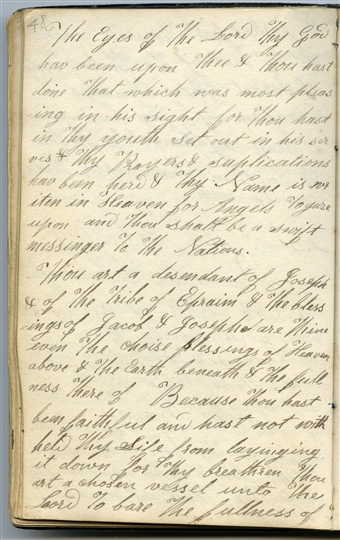 48
The Eyes of the Lord Thy God
hav been upon Thee & Thou hast
done That which was most pleas
ing in his sight for Thou hast
in Thy youth set out in his ser
ves & Thy Prayers & suplications
hav been herd & Thy Name is wr
iten in Heaven for Angels To gaze
upon and Thou shalt be a swift
messinger To The Nations.
Thou art a desendant of Joseph
& of The Tribe of Epraim & The bless
ings of Jacob & Josephs are Thine
even The choise blessings of Heaven
above & The Earth beneath & The full
ness There of Because Thou hast
been faithful and hast not with
held Thy Life from laying ing
it down for Thy breathren Thou
art a chosen vessel unto The
Lord To bare The fullness of